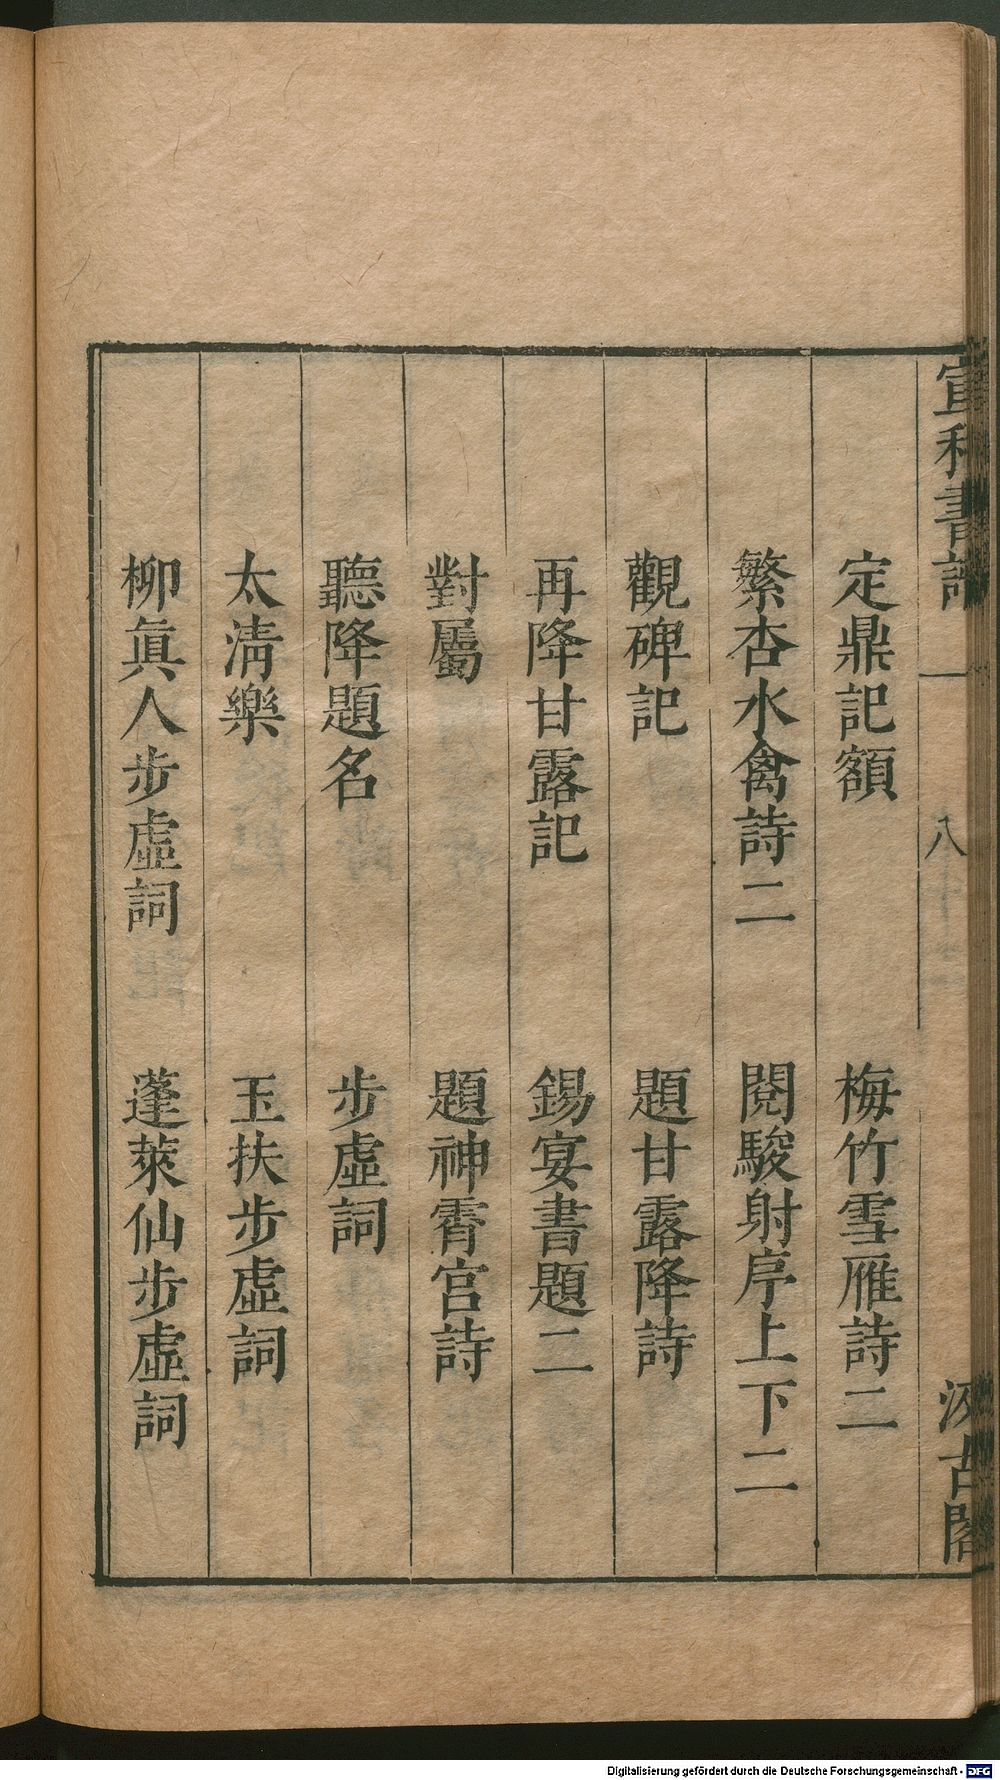 宣和書譜 一 八 汲古閣
定鼎記額 梅竹雪雁詩二
繁杏水禽詩二 閱駿射序上下二
觀碑記 題甘露降詩
再降甘露記 錫宴書題二
對屬 題神霄宮詩
聽降題名 步虛詞
太清樂 玉扶步虛詞
柳眞人步虛詞 蓬萊仙步虛詞
Digitalisierung gefördert durch die Deutsche Forschungsgemeinschaft - DFG